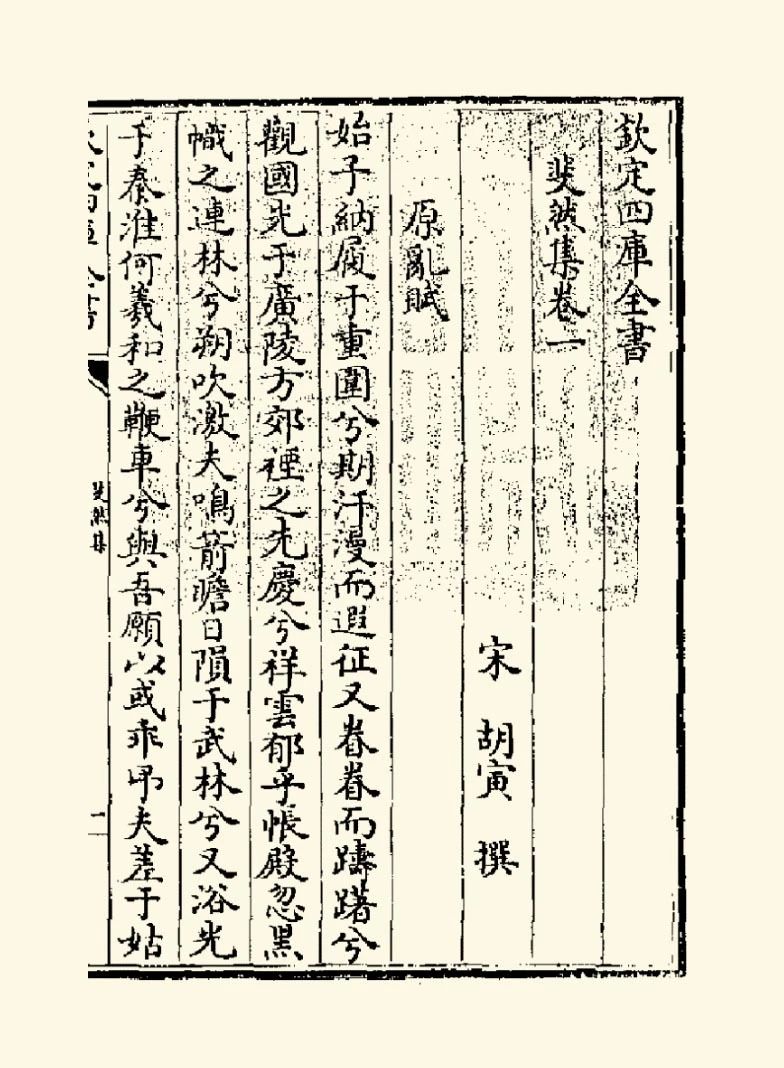 欽定四庫全書
斐然集卷一
宋 胡寅 撰
原亂賦
始予納屨于重圍兮期汗漫而遐征又眷眷而躊躇兮
觀國光于廣陵方郊禋之先慶兮祥雲郁乎帳殿忽黑
幟之連林兮朔吹激夫鳴箭瞻日隕于武林兮又浴光
于秦淮何羲和之鞭車兮與吾願以或乖弔夫差于姑
欽定四庫全書
斐然集
一